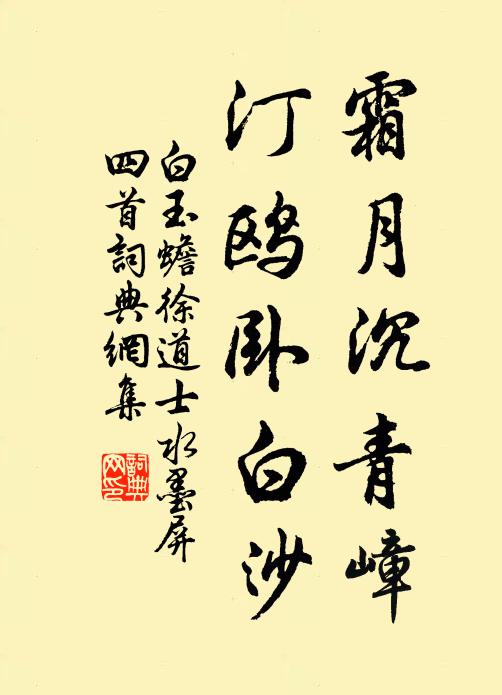 霜月沉青嶂
汀鸥卧白沙
白玉蟾徐道士水墨屏
四首詞典網集
詞典網印